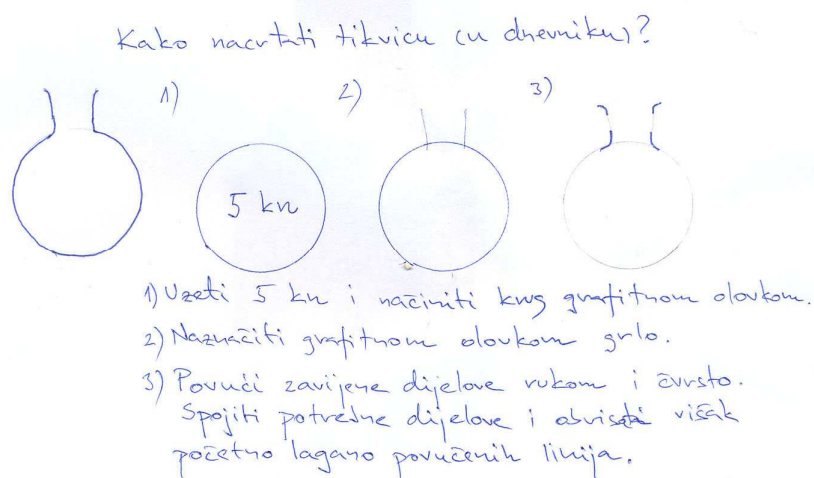 Kako nacrtati tikvicu (u dnevniku)?
1) 2) 3)
5 kn
1) Uzeti 5 kn i načiniti krug grafitnom olovkom.
2) Naznačiti grafitnom olovkom grlo.
3) Povući zavijene dijelove rukom i čvrsto.
Spojiti potrebne dijelove i obrisati višak
početno lagano povučenih linija.